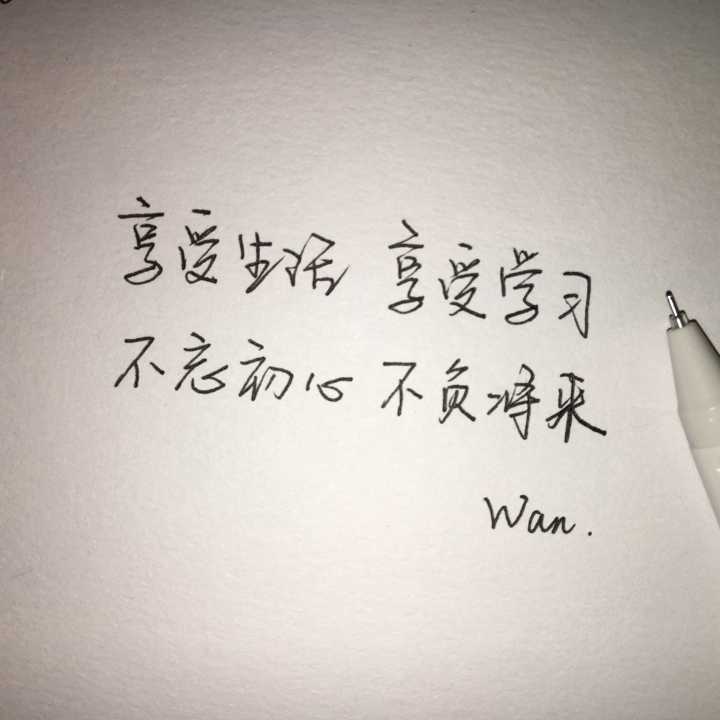 享受生活 享受学习
不忘初心 不负将来
Wan.